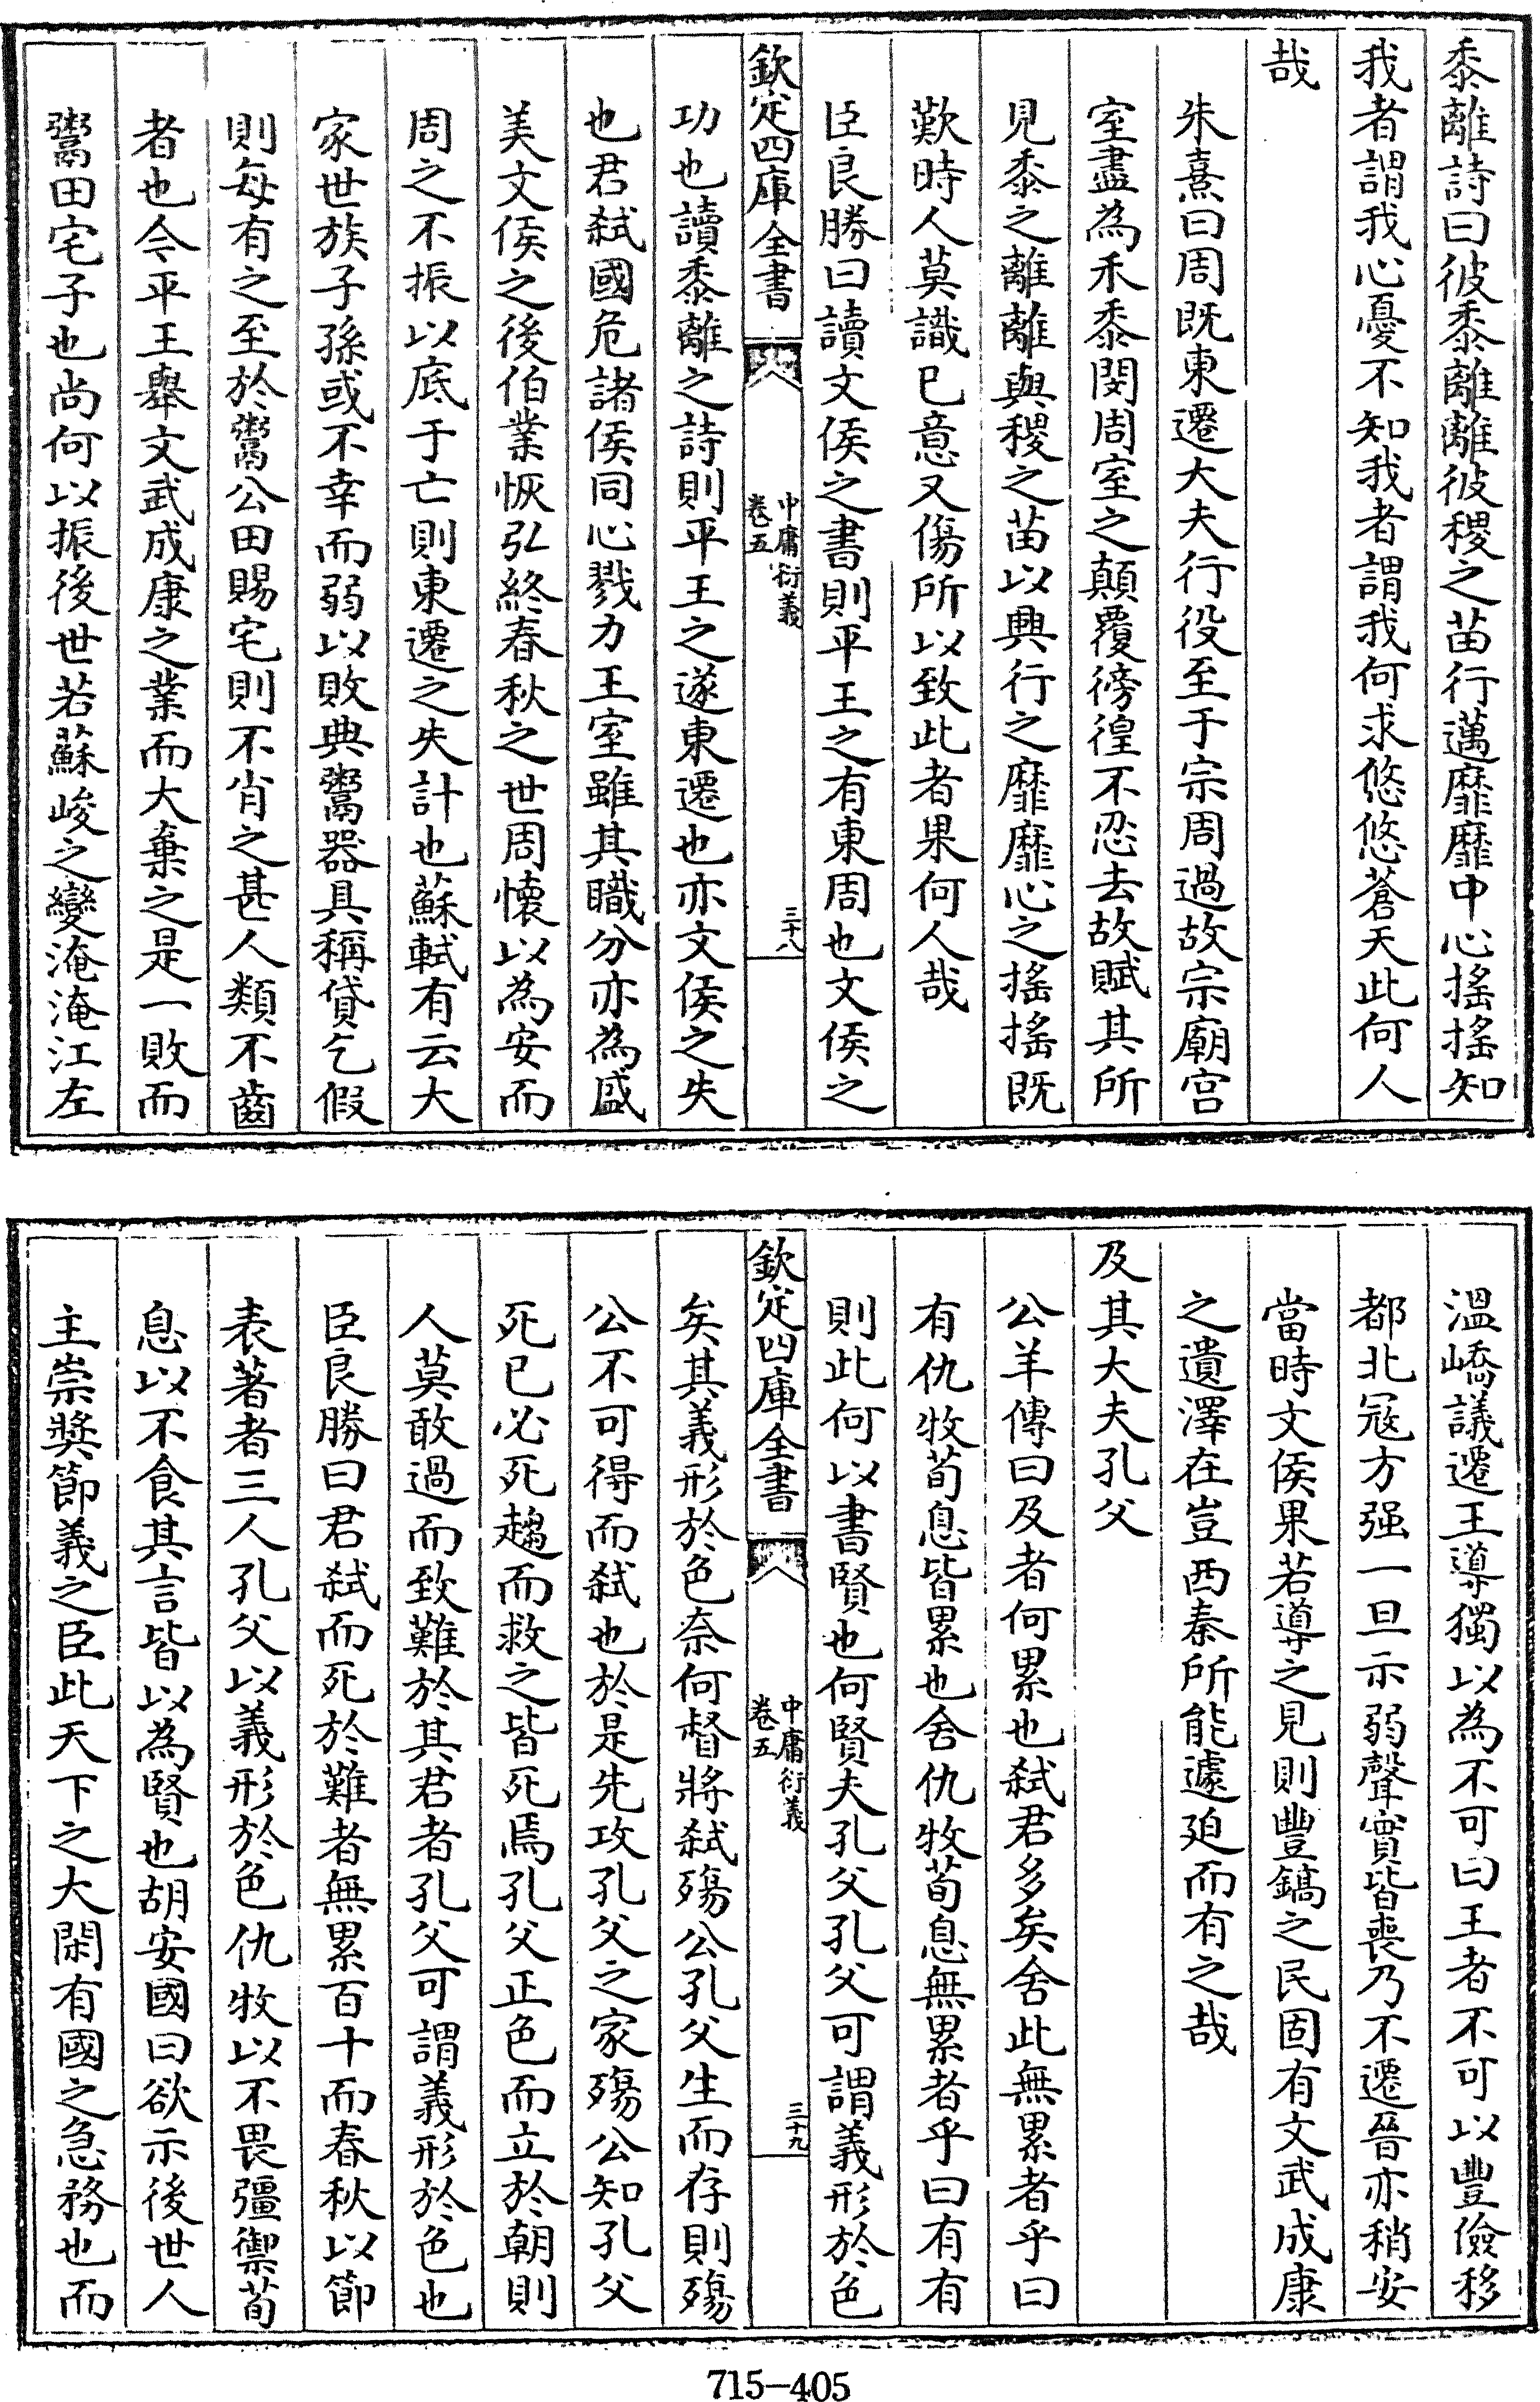 黍離詩曰彼黍離離彼稷之苗行邁靡靡中心搖搖知
我者謂我心憂不知我者謂我何求悠悠蒼天此何人
哉
朱熹曰周既東遷大夫行役至于宗周過故宗廟宫
室盡為禾黍閔周室之顛覆徬徨不忍去故賦其所
見黍之離離與稷之苗以興行之靡靡心之搖搖既
歎時人莫識已意又傷所以致此者果何人哉
臣良勝曰讀文侯之書則平王之有東周也文侯之
欽定四庫全書
中庸衍義
卷五
三十八
功也讀黍離之詩則平王之遂東遷也亦文侯之失
也君弑國危諸侯同心戮力王室雖其職分亦為盛
美文侯之後伯業恢弘終春秋之世周懷以為安而
周之不振以底于亡則東遷之失計也蘇軾有云大
家世族子孫或不幸而弱以敗典鬻器具稱貸乞假
則每有之至於鬻公田賜宅則不肖之甚人類不齒
者也今平王舉文武成康之業而大棄之是一敗而
鬻田宅子也尚何以振後世若蘇峻之變淹淹江左
溫嶠議遷王導獨以為不可曰王者不可以豐儉移
都北冦方强一旦示弱聲實皆喪乃不遷晉亦稍安
當時文侯果若導之見則豐鎬之民固有文武成康
之遺澤在豈西秦所能遽廹而有之哉
及其大夫孔父
公羊傳曰及者何累也弑君多矣舍此無累者乎曰
有仇牧荀息皆累也舍仇牧荀息無累者乎曰有有
則此何以書賢也何賢夫孔父孔父可謂義形於色
欽定四庫全書
中庸衍義
卷五
三十九
矣其義形於色奈何督將弑殤公孔父生而存則殤
公不可得而弑也於是先攻孔父之家殤公知孔父
死已必死趨而救之皆死焉孔父正色而立於朝則
人莫敢過而致難於其君者孔父可謂義形於色也
臣良勝曰君弑而死於難者無累百十而春秋以節
表著者三人孔父以義形於色仇牧以不畏彊禦荀
息以不食其言皆以為賢也胡安國曰欲示後世人
主崇奬節義之臣此天下之大閑有國之急務也而
715-405